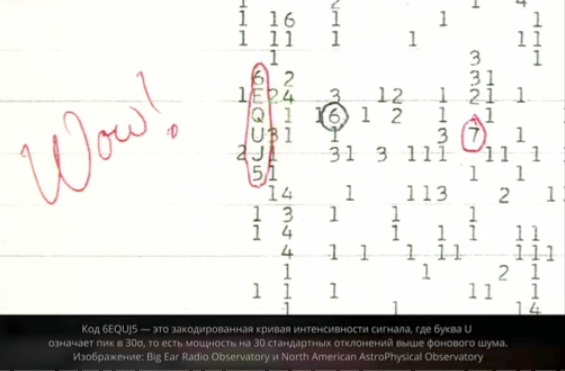 1 16 1 1 1
1 11 1 1 11
1 3 1
6 2 31
1 E24 3 12 1 21 1
Q 1 16 1 2 1 1
U31 1 3 7 1
2 J1 31 3 111 11 1
51 1 1
14 1 113 2 1
1 3 1 1 1
1 4 1 1 1 11
4 1 1 1 11 111
1 1 2 1
1 1 1 11 1
1 14
Wow!
Код 6EQUJ5 — это закодированная кривая интенсивности сигнала, где буква U
означает пик в 30σ, то есть мощность на 30 стандартных отклонений выше фонового шума.
Изображение: Big Ear Radio Observatory и North American AstroPhysical Observatory